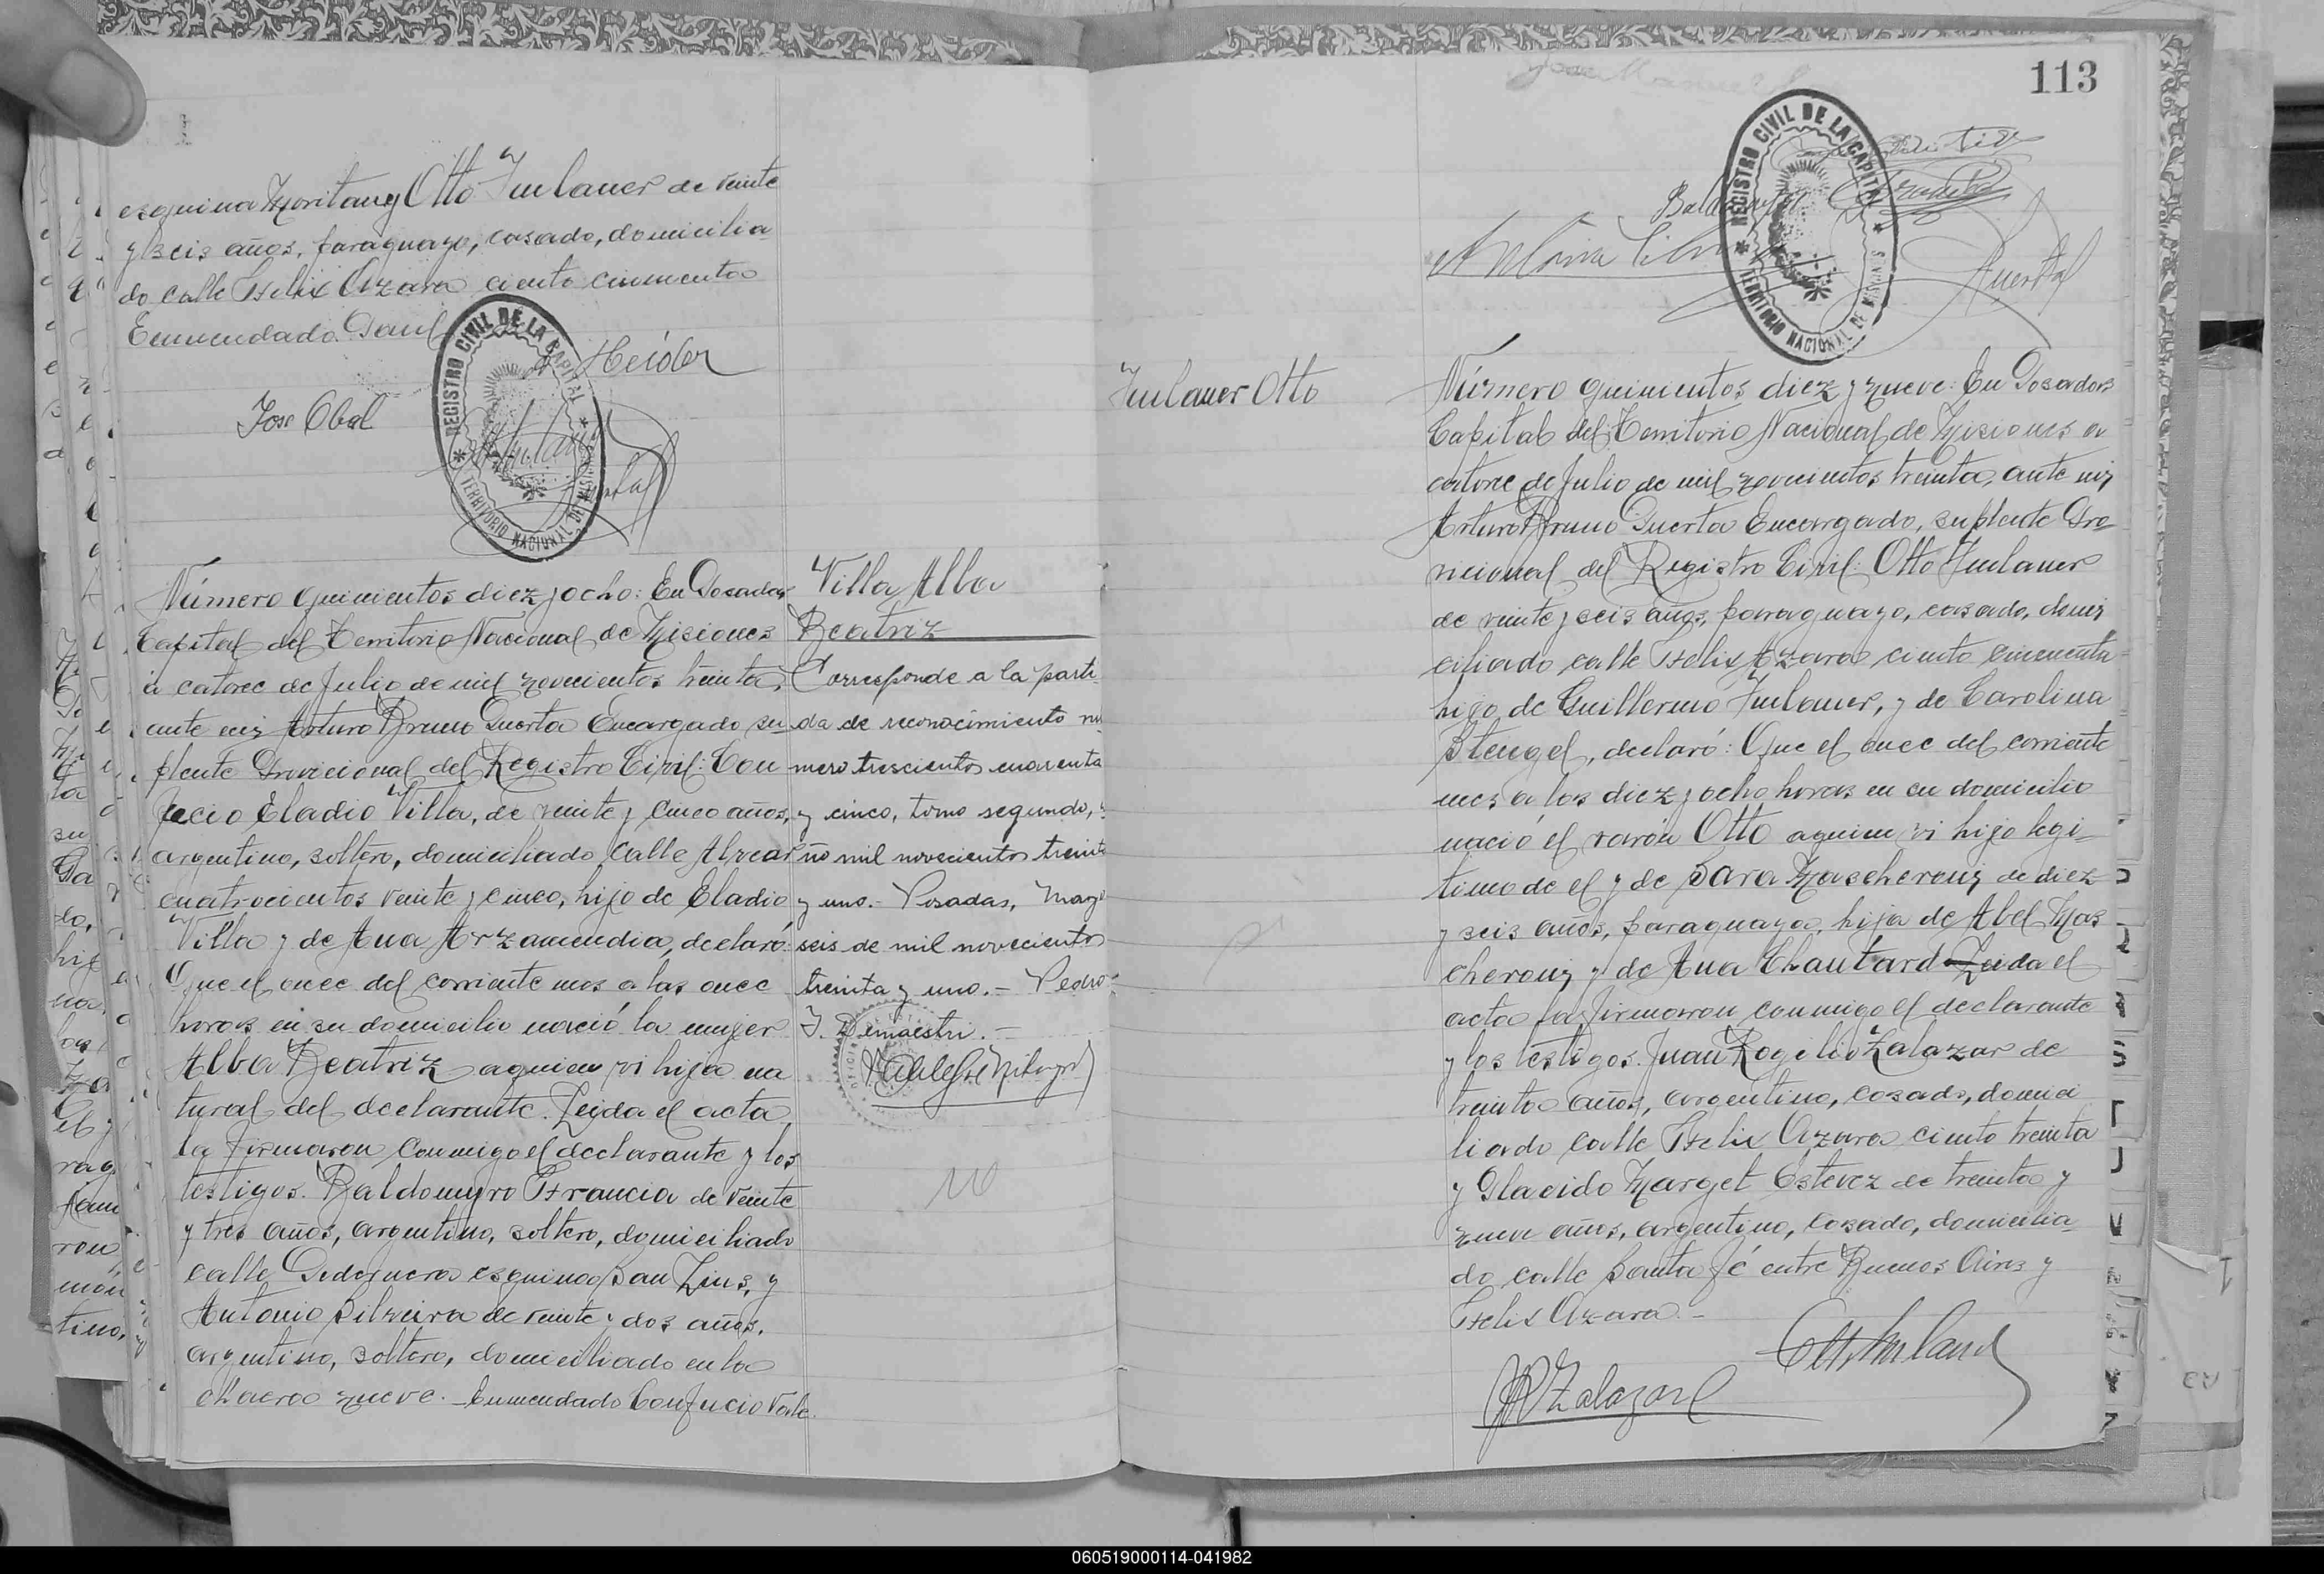 esquina Moritan y Otto Imlauer de veinte
y seis años, paraguayo, casado, domicilia
do calle Felix Azara ciento cincuenta
Enmendado Paul
Heider
REGISTRO CIVIL DE LA CAPITAL
TERRITORIO NACIONAL DE MISIONES
Jose Obal
Número quinientos diez y ocho: En Posadas
Capital del Territorio Nacional de Misiones
á catorce de Julio de mil novecientos treinta,
ante mi Arturo Bruno Puerta Encargado su
plente Provicional del Registro Civil: Con
fucio Eladio Villa, de veinte y cinco años,
argentino, soltero, domiciliado calle Alvear
cuatrocientos veinte y cinco, hijo de Eladio
Villa y de Ana Arzamendia, declaró:
Que el once del corriente mes a las once
horas en su domicilio nació la mujer
Alba Beatriz a quien vi hija na
tural del declarante. Leida el acta
la firmaron conmigo el declarante y los
testigos. Baldomero Francia de veinte
y tres años, argentino, soltero, domiciliado
calle Pedernera esquina San Luis, y
Antonio Silveira de veinte y dos años,
argentino, soltero, domiciliado en la
chacra nueve. Enmendado Confucio Vale.
Villa Alba
Beatriz
Corresponde a la parti
da de reconocimiento nu
mero trescientos cuarenta
y cinco, tomo segundo,
ño mil novecientos treinta
y uno.- Posadas, Mayo
seis de mil novecientos
treinta y uno.- Pedro
J. Demaestri.-
113
REGISTRO CIVIL DE LA CAPITAL
TERRITORIO NACIONAL DE MISIONES
Imlauer Otto
Número quinientos diez y nueve: En Posadas
Capital del Territorio Nacional de Misiones a
catorce de Julio de mil novecientos treinta, ante mi
Arturo Bruno Puerta Encargado, suplente Pro
vicional del Registro Civil: Otto Imlauer
de veinte y seis años, paraguayo, casado, domi
ciliado calle Felix Azara ciento cincuenta
hijo de Guillermo Imlauer, y de Carolina
Stengel, declaró: Que el once del corriente
mes a las diez y ocho horas en su domicilio
nació el varón Otto a quien vi hijo legi
timo de el y de Sara Mascheroni, de diez
y seis años, paraguaya, hija de Abel Mas
cheroni, y de Ana Chautard Leida el
acta la firmaron conmigo el declarante
y los testigos. Juan Rogelio Zalazar de
treinta años, argentino, casado, domici
liado calle Felix Azara ciento treinta
y Placido Marget Estevez de treinta y
nueve años, argentino, casado, domicilia
do calle Santa Fé entre Buenos Aires y
Felix Azara.-
Otto Imlauer
JR Zalazar
060519000114-041982